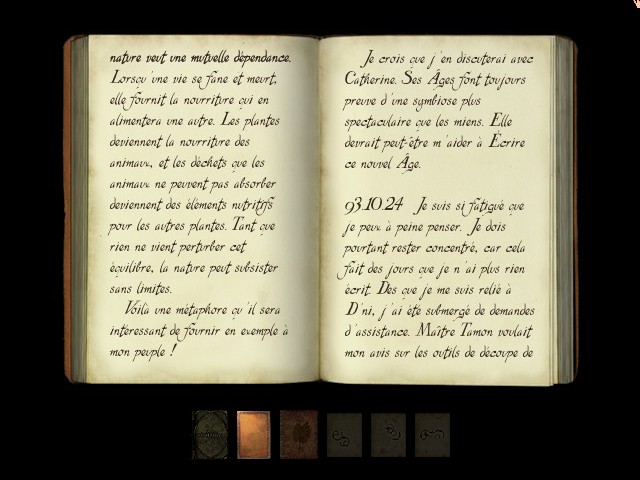 nature veut une mutuelle dépendance.
Lorsqu'une vie se fane et meurt,
elle fournit la nourriture qui en
alimentera une autre. Les plantes
deviennent la nourriture des
animaux, et les déchets que les
animaux ne peuvent pas absorber
deviennent des éléments nutritifs
pour les autres plantes. Tant que
rien ne vient perturber cet
équilibre, la nature peut subsister
sans limites.
Voilà une métaphore qu'il sera
intéressant de fournir en exemple à
mon peuple !
Je crois que j'en discuterai avec
Catherine. Ses Âges font toujours
preuve d'une symbiose plus
spectaculaire que les miens. Elle
devrait peut-être m'aider à Écrire
ce nouvel Âge.
93.10.24 Je suis si fatigué que
je peux à peine penser. Je dois
pourtant rester concentré, car cela
fait des jours que je n'ai plus rien
écrit. Dès que je me suis relié à
D'ni, j'ai été submergé de demandes
d'assistance. Maître Tamon voulait
mon avis sur les outils de découpe de